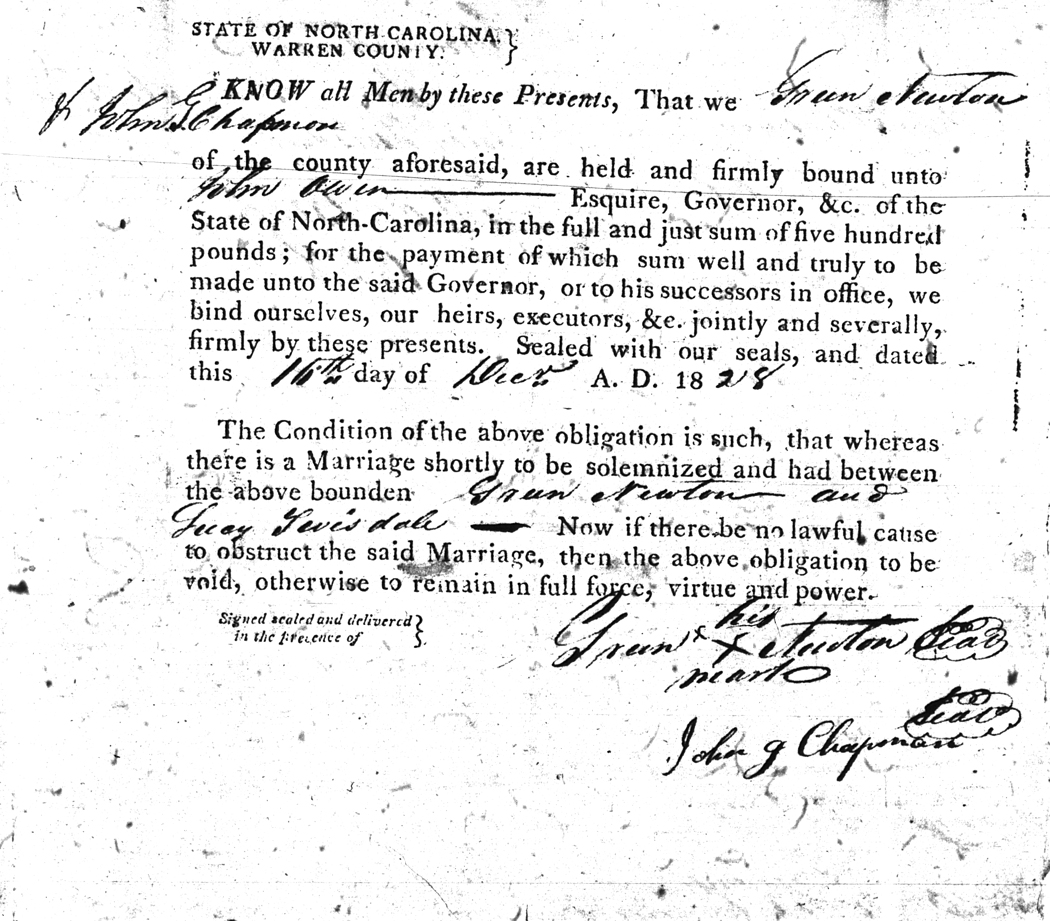 STATE OF NORTH CAROLINA, }
WARREN COUNTY. }
KNOW all Men by these Presents, That we Green Newton
& John G Chapman
of the county aforesaid, are held and firmly bound unto
John Owen Esquire, Governor, &c. of the
State of North-Carolina, in the full and just sum of five hundred
pounds; for the payment of which sum well and truly to be
made unto the said Governor, or to his successors in office, we
bind ourselves, our heirs, executors, &c. jointly and severally,
firmly by these presents. Sealed with our seals, and dated
this 16th day of Decr A. D. 1828
The Condition of the above obligation is such, that whereas
there is a Marriage shortly to be solemnized and had between
the above bounden Green Newton and
Lucy Now if there be no lawful cause
to obstruct the said Marriage, then the above obligation to be
void, otherwise to remain in full force, virtue and power.
Signed sealed and delivered }
in the presence of }
his
Green X Newton Seal
mark
Seal
John G Chapman